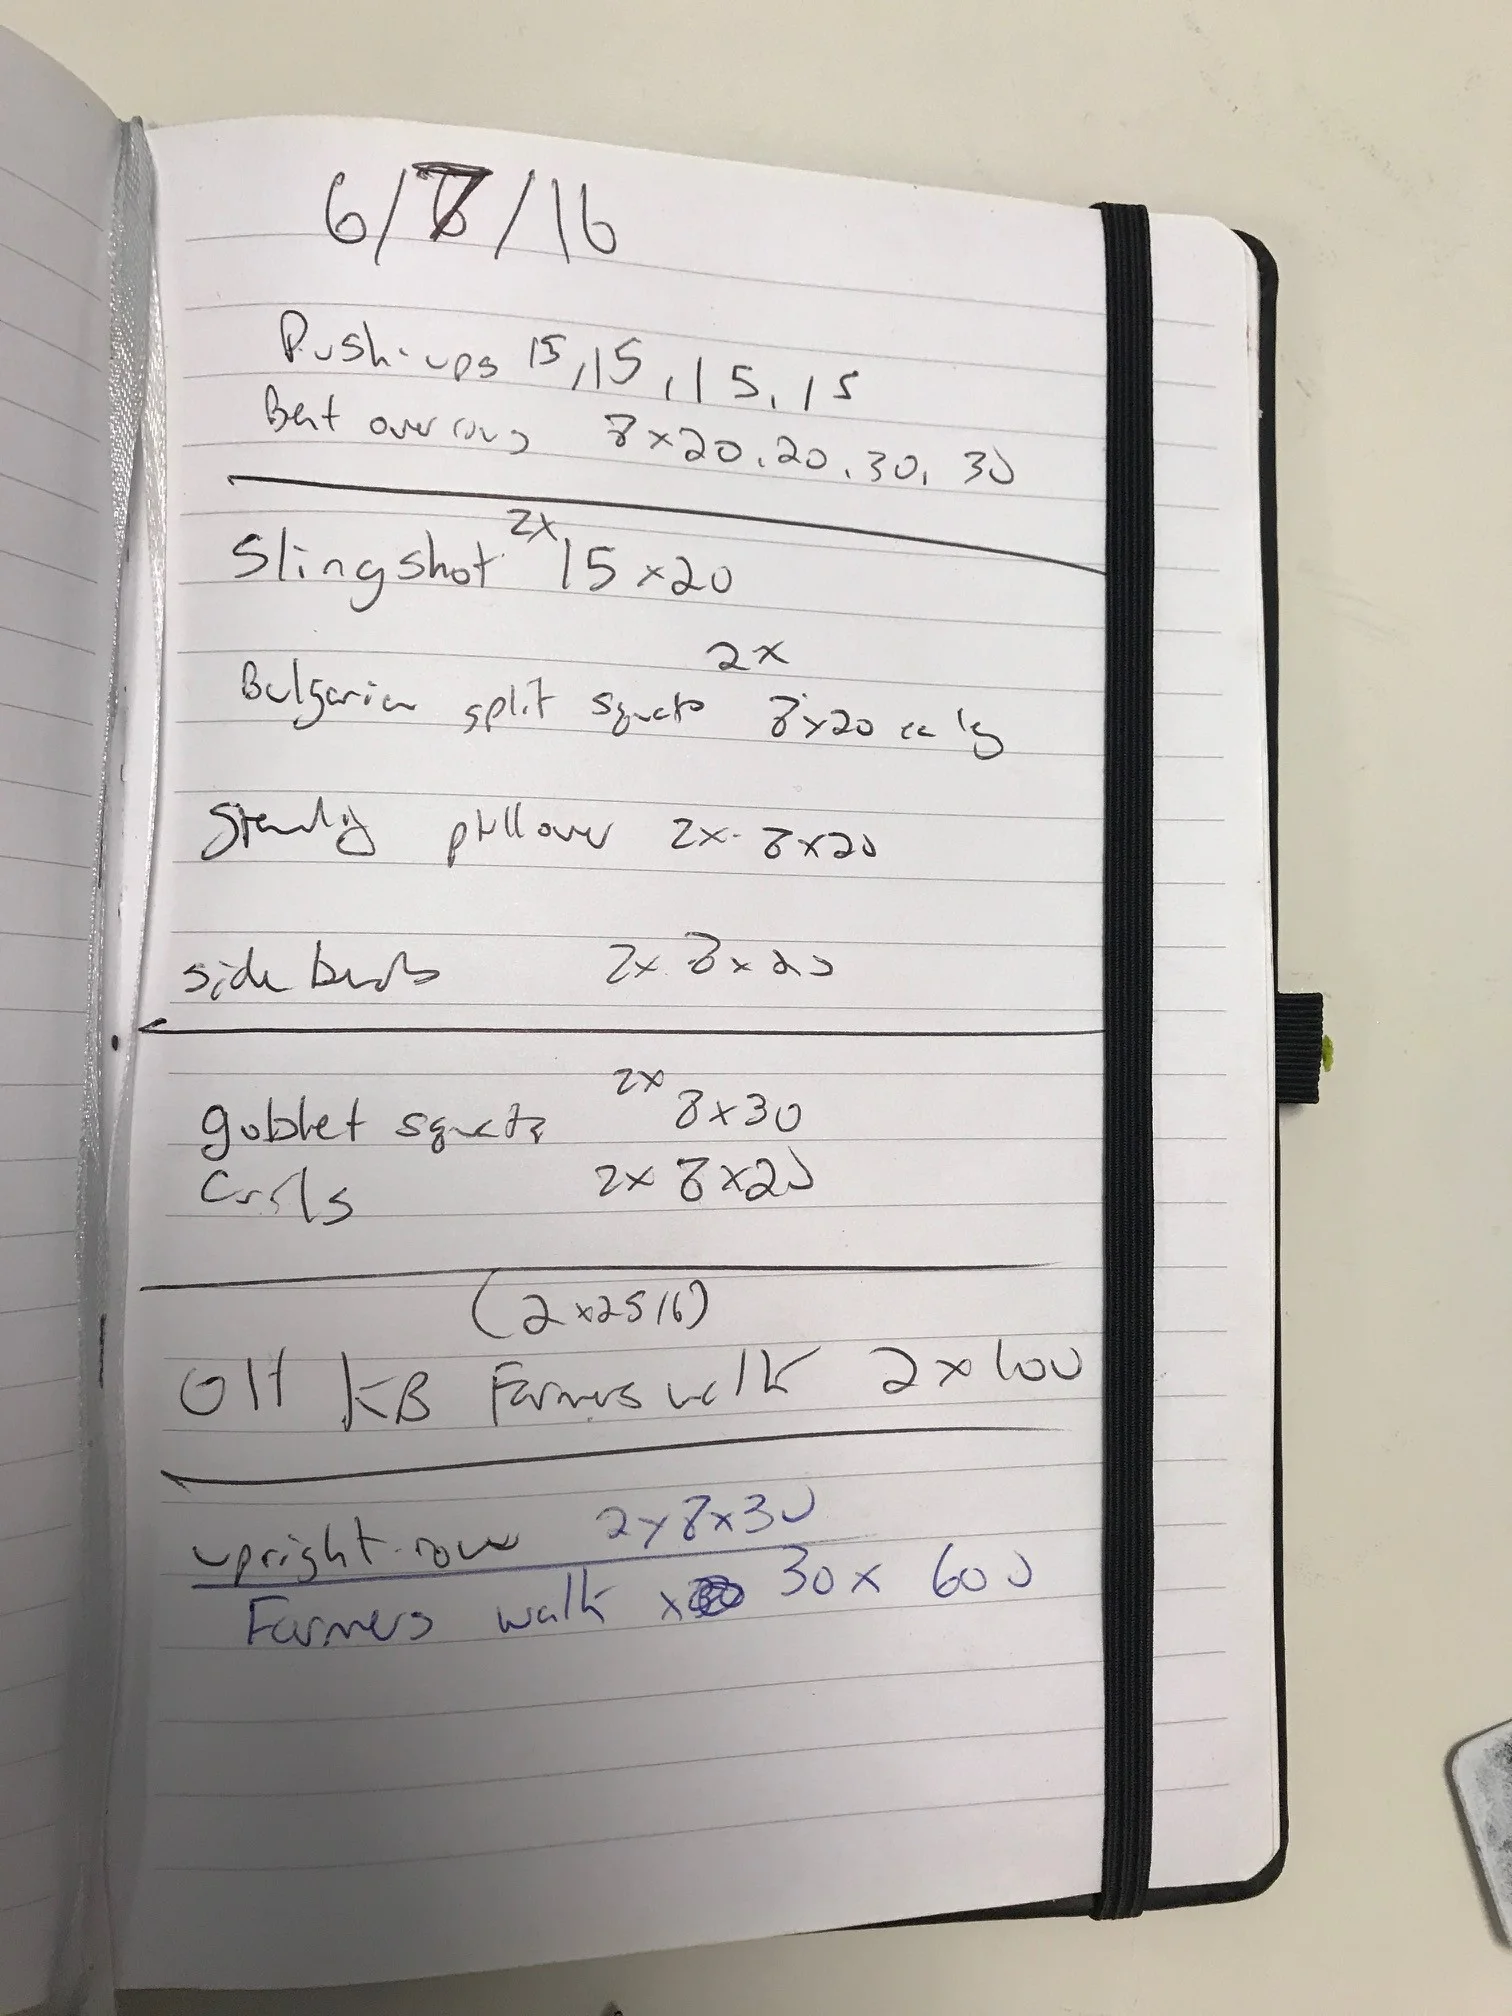 6/7/16
Push-ups 15, 15, 15, 15
Bent over rows 8x20, 20, 30, 30
Slingshot 2x 15x20
2x
Bulgarian split squats 8x20 ea leg
Standing pullover 2x 8x20
side bends 2x 8x20
goblet squats 2x 8x30
Curls 2x 8x20
(2x25lb)
OH KB Farmers walk 2x100
upright row 2x8x30
Farmers walk x 30x 600